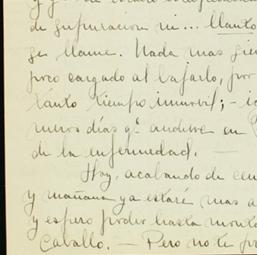 de supuracion ni... llanto
se llame. Nada mas sien
poco cargado al bajarlo, por
tanto tiempo inmovil; -
meros días q. anduve en
de la enfermedad. —
Hoy, acabando de cen
y mañana ya estaré mas a
y espero poder hasta monta
Caballo. — Pero no te pr